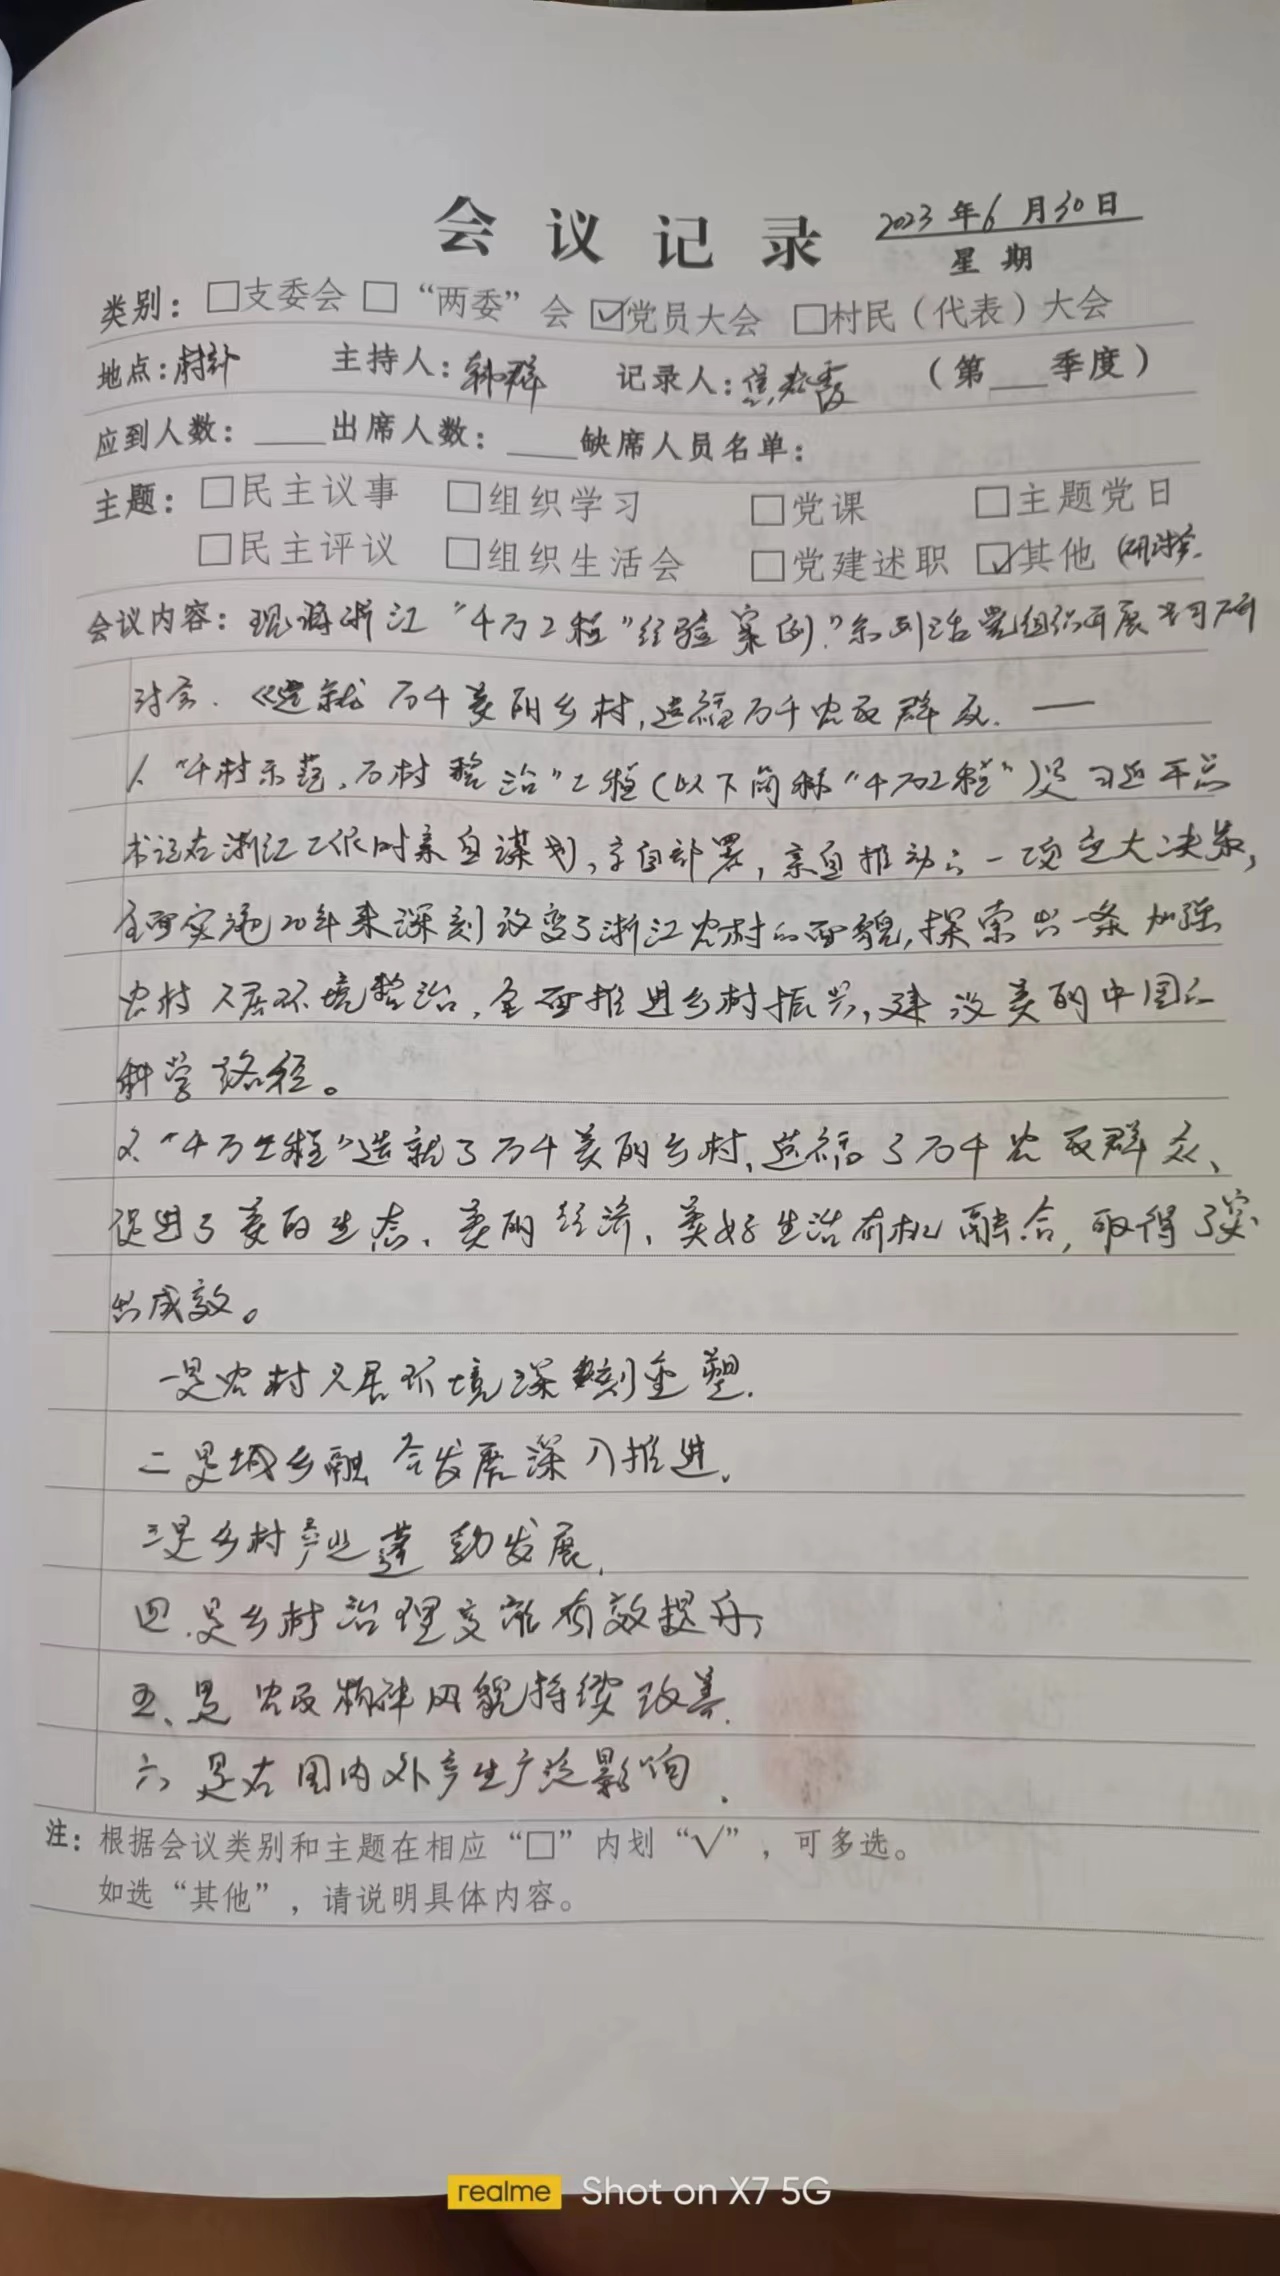 会议记录 2023年6月30日
星期
类别：□支委会 □“两委”会 ☑党员大会 □村民（代表）大会
地点：村部 主持人：韩群 记录人：焦 霞 （第___季度）
应到人数：____出席人数：____缺席人员名单：
主题：□民主议事 □组织学习 □党课 □主题党日
□民主评议 □组织生活会 □党建述职 ☑其他（研讨会
会议内容：现将浙江“千万工程”经验案例 党组织开展学习研
讨会.《造就万千美丽乡村，造福万千农民群众.——
1、“千村示范、万村整治”工程（以下简称“千万工程”）是习近平总
书记在浙江工作时亲自谋划，亲自部署，亲自推动的一项重大决策，
全面实施20年来深刻改变了浙江农村的面貌，探索出一条加强
农村人居环境整治，全面推进乡村振兴，建设美丽中国的
科学路径。
2、“千万工程”造就了万千美丽乡村，造福了万千农民群众、
促进了美丽生态、美丽经济、美好生活有机融合，取得了突
出成效。
一是农村人居环境深刻重塑.
二是城乡融合发展深入推进.
三是乡村产业蓬勃发展.
四.是乡村治理变能有效提升，
五、是农民精神风貌持续改善.
六 是在国内外产生广泛影响.
注：根据会议类别和主题在相应“□”内划“√”，可多选。
如选“其他”，请说明具体内容。
realme Shot on X7 5G